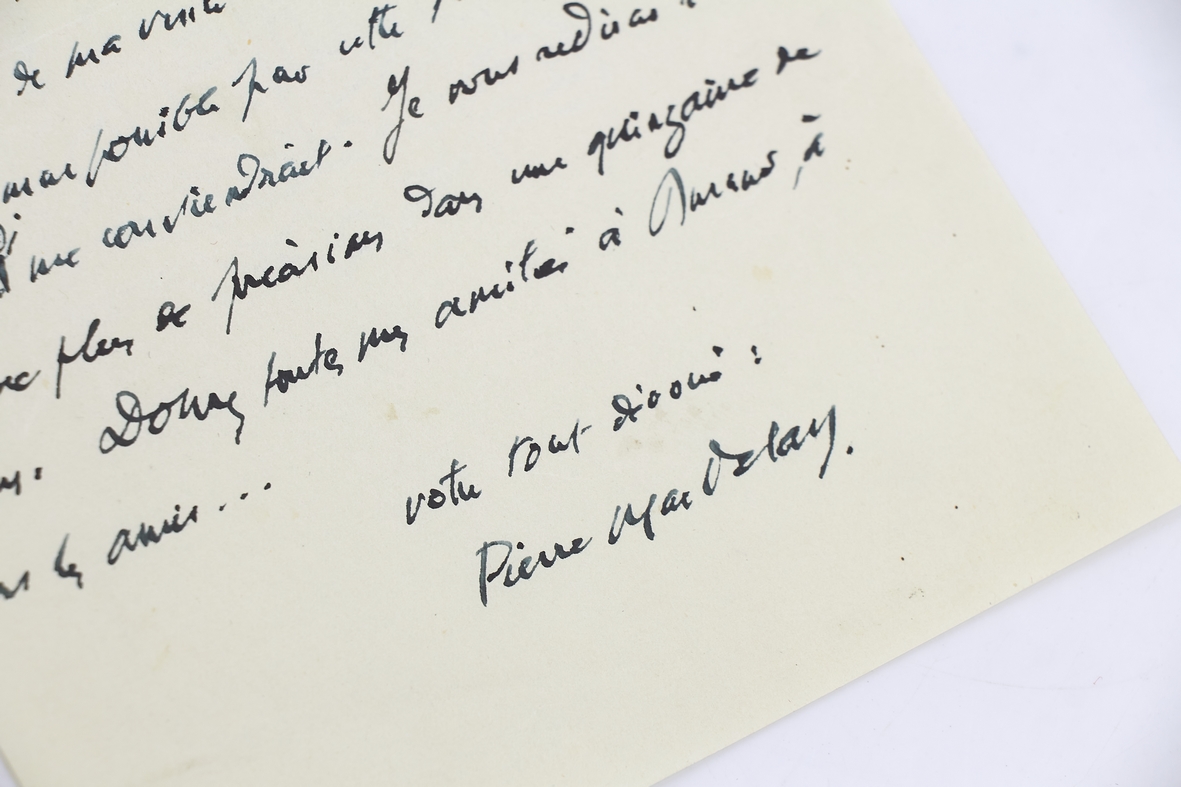 de ma visite
possible par cette
me conviendrait. Je vous redirai
plus de précisions dans une quinzaine de
Donnez toutes mes amitiés à Durand, à
les amis...
votre tout dévoué :
Pierre Mac Orlan.